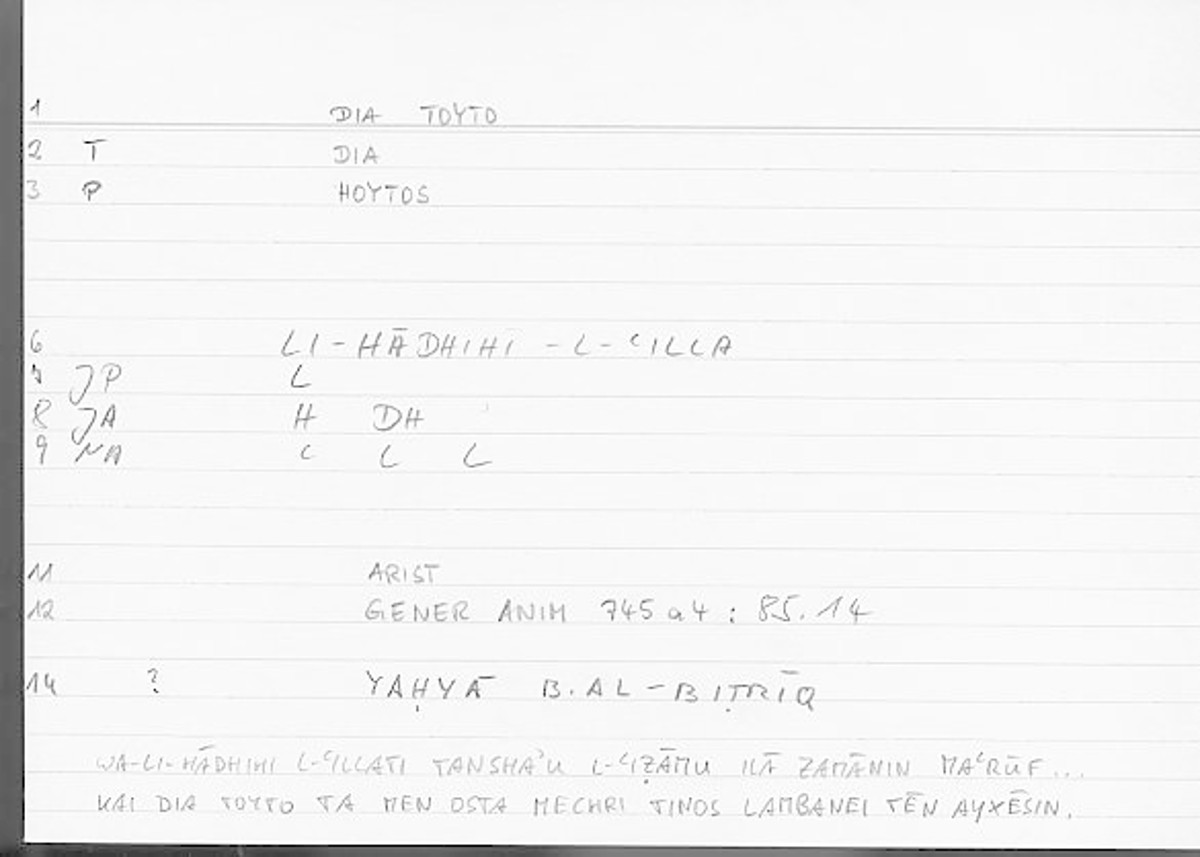 1 DIA TOYTO
2 T DIA
3 P HOYTOS
6 LI-HĀDHIHI-L-ʿILLA
7 JP L
8 JA H DH
9 NA ʿ L L
11 ARIST
12 GENER ANIM 745a4 : 85.14
14 ? YAḤYĀ B. AL-BIṬRĪQ
WA-LI-HĀDHIHI L-ʿILLATI TANSHAʾU L-ʿIẒĀMU ILĀ ZAMĀNIN MAʿRŪF...
KAI DIA TOYTO TA MEN OSTA MECHRI TINOS LAMBANEI TĒN AYXĒSIN.